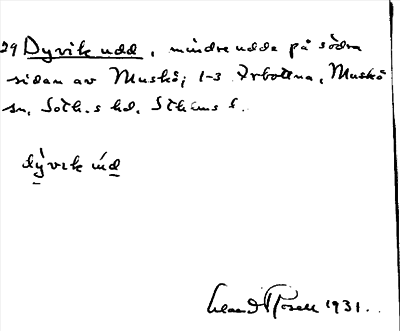 29 Dyvik udd, mindre udde på södra
sidan av Muskö; 1-3 Arbottna, Muskö
sn, Soth.s hd. Sthlms l.
dỳvik ùd
1931.